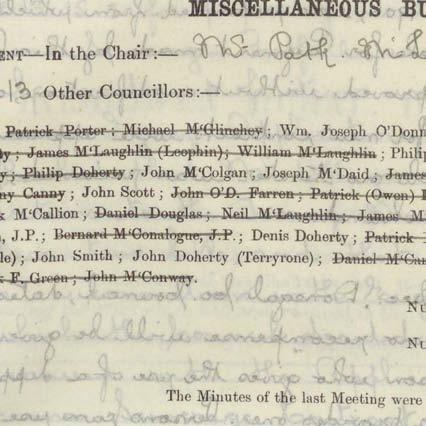 MISCELLANEOUS BU
ENT—In the Chair:— Mr Patk. McL
13 Other Councillors:—
Patrick Porter; Michael M'Glinchey; Wm. Joseph O'Donn
y; James M'Laughlin (Leophin); William M'Laughlin; Philip
y; Philip Doherty; John M'Colgan; Joseph M'Daid; James
ny Canny; John Scott; John O'D. Farren; Patrick (Owen) D
k M'Callion; Daniel Douglas; Neil M'Laughlin; James M
, J.P.; Bernard M'Conalogue, J.P.; Denis Doherty; Patrick
le); John Smith; John Doherty (Terryrone); Daniel M'Car
k F. Green; John M'Conway.
Nu
Nu
The Minutes of the last Meeting were